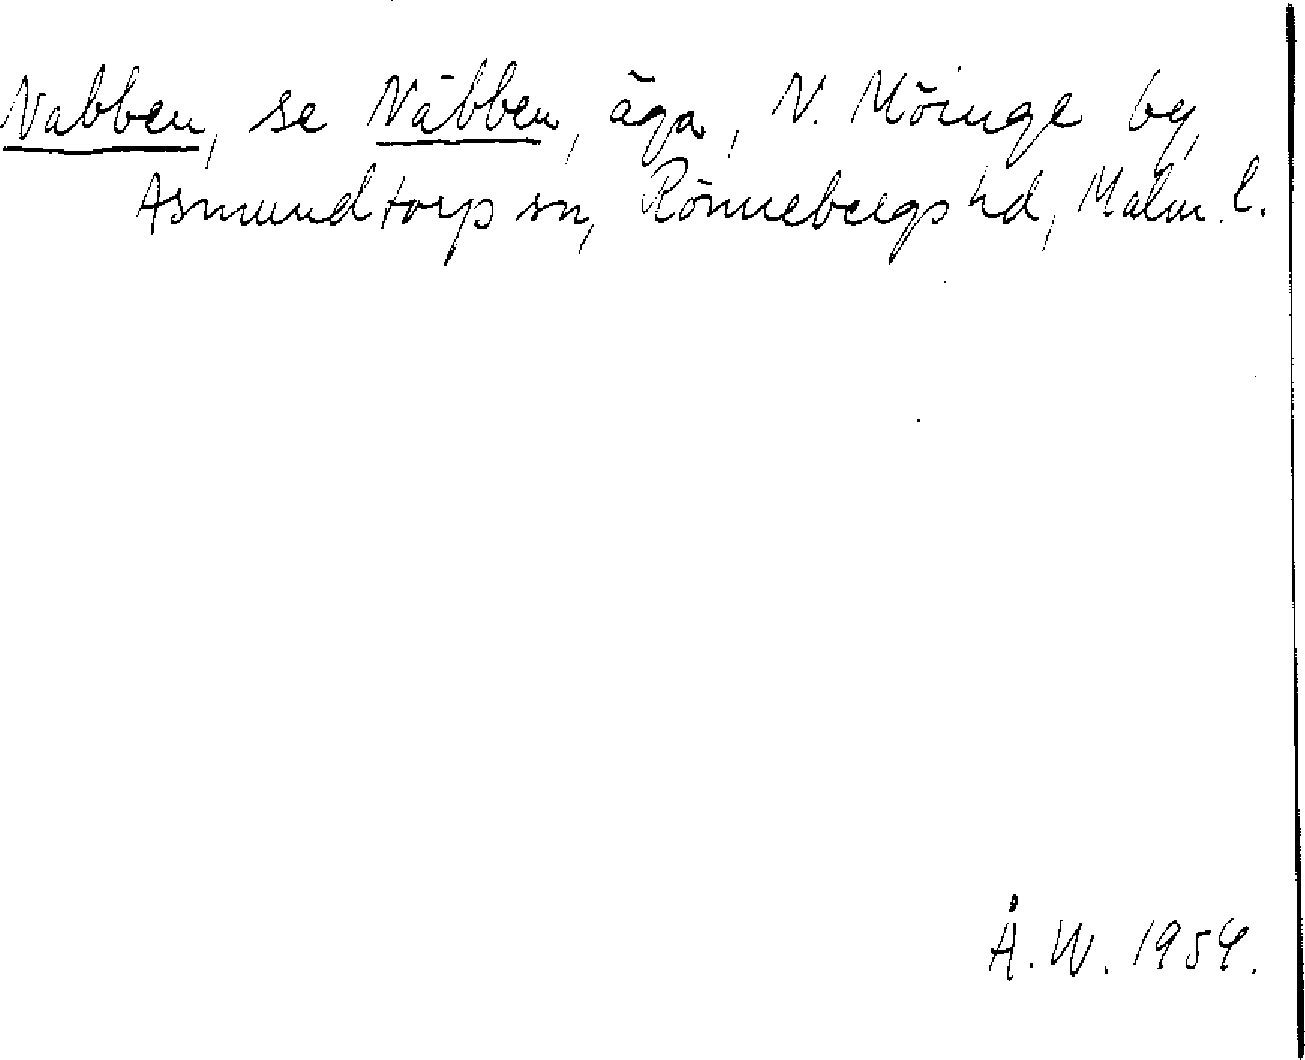 Nabben, se Näbben, äga, N. Möinge by,
Asmundtorp sn, Rönnebergs hd, Malm. l.
Å. W. 1954.